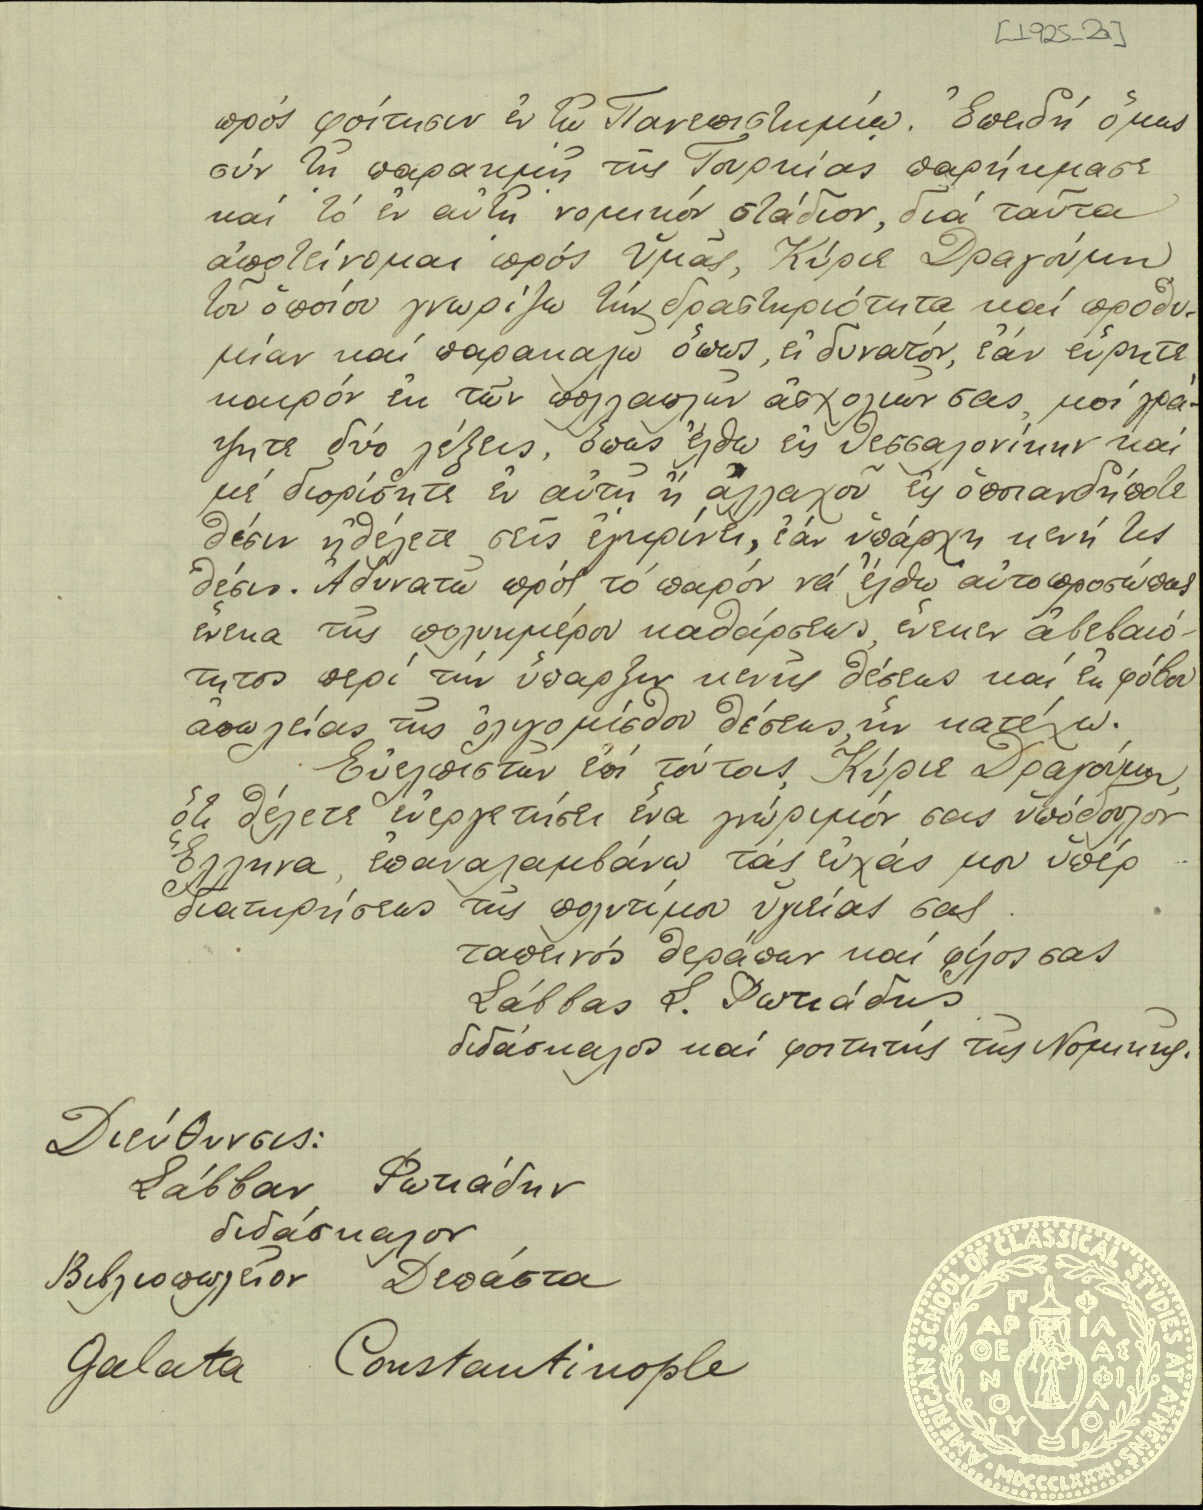 [1925_2α]
πρός φοίτησιν ἐν τῳ Πανεπιστημίῳ. Ἐπειδή ὅμως
σύν τῇ παρακμῇ τῆς Τουρκίας παρήκμασε
καί τό ἐν αὐτῇ νομικόν στάδιον, διά ταῦτα
ἀποτείνομαι πρός Ὑμᾶς, Κύριε Δραγούμη
τοῦ ὁποίου γνωρίζω τήν δραστηριότητα καί προθυ-
μίαν καί παρακαλῶ ὅπως, εἰ δυνατόν, ἐάν εὕρητε
καιρόν ἐκ τῶν πολλαπλῶν ἀσχολιῶν σας, μοί γρά-
ψητε δύο λέξεις, ὅπως ἔλθω εἰς Θεσσαλονίκην καί
μέ διορίσητε ἐν αὐτῇ ἤ ἀλλαχοῦ εἰς ὁποιανδήποτε
θέσιν ἠθέλετε σεῖς ἐγκρίνει, ἐάν ὑπάρχῃ κενή τις
θέσις. Ἀδυνατῶ πρός τό παρόν νά ἔλθω αὐτοπροσώπως
ἕνεκα τῆς πολυημέρου καθάρσεως, ἕνεκεν ἀβεβαιό-
τητος περί τήν ὕπαρξιν κενῆς θέσεως καί ἐκ φόβου
ἀπωλείας τῆς ὀλιγομίσθου θέσεως, ἥν κατέχω.
Εὐελπιστῶν ἐπί τούτοις, Κύριε Δραγούμη,
ὅτι θέλετε εὐεργετήσει ἕνα γνώριμόν σας ὑπόδουλον
Ἕλληνα, ἐπαναλαμβάνω τάς εὐχάς μου ὑπέρ
διατηρήσεως τῆς πολυτίμου ὑγιείας σας.
ταπεινός θεράπων καί φίλος σας
Σάββας Σ. Φωτιάδης
διδάσκαλος καί φοιτητής τῆς Νομικῆς.
Διεύθυνσις:
Σάββαν Φωτιάδην
διδάσκαλον
Βιβλιοπωλεῖον Δεπάστα
Galata Constantinople
AMERICAN SCHOOL OF CLASSICAL STUDIES AT ATHENS
MDCCCLXXXI
ΠΑΡΘΕΝΟΥ ΦΙΛΑΣ ΦΙΛΟΙ